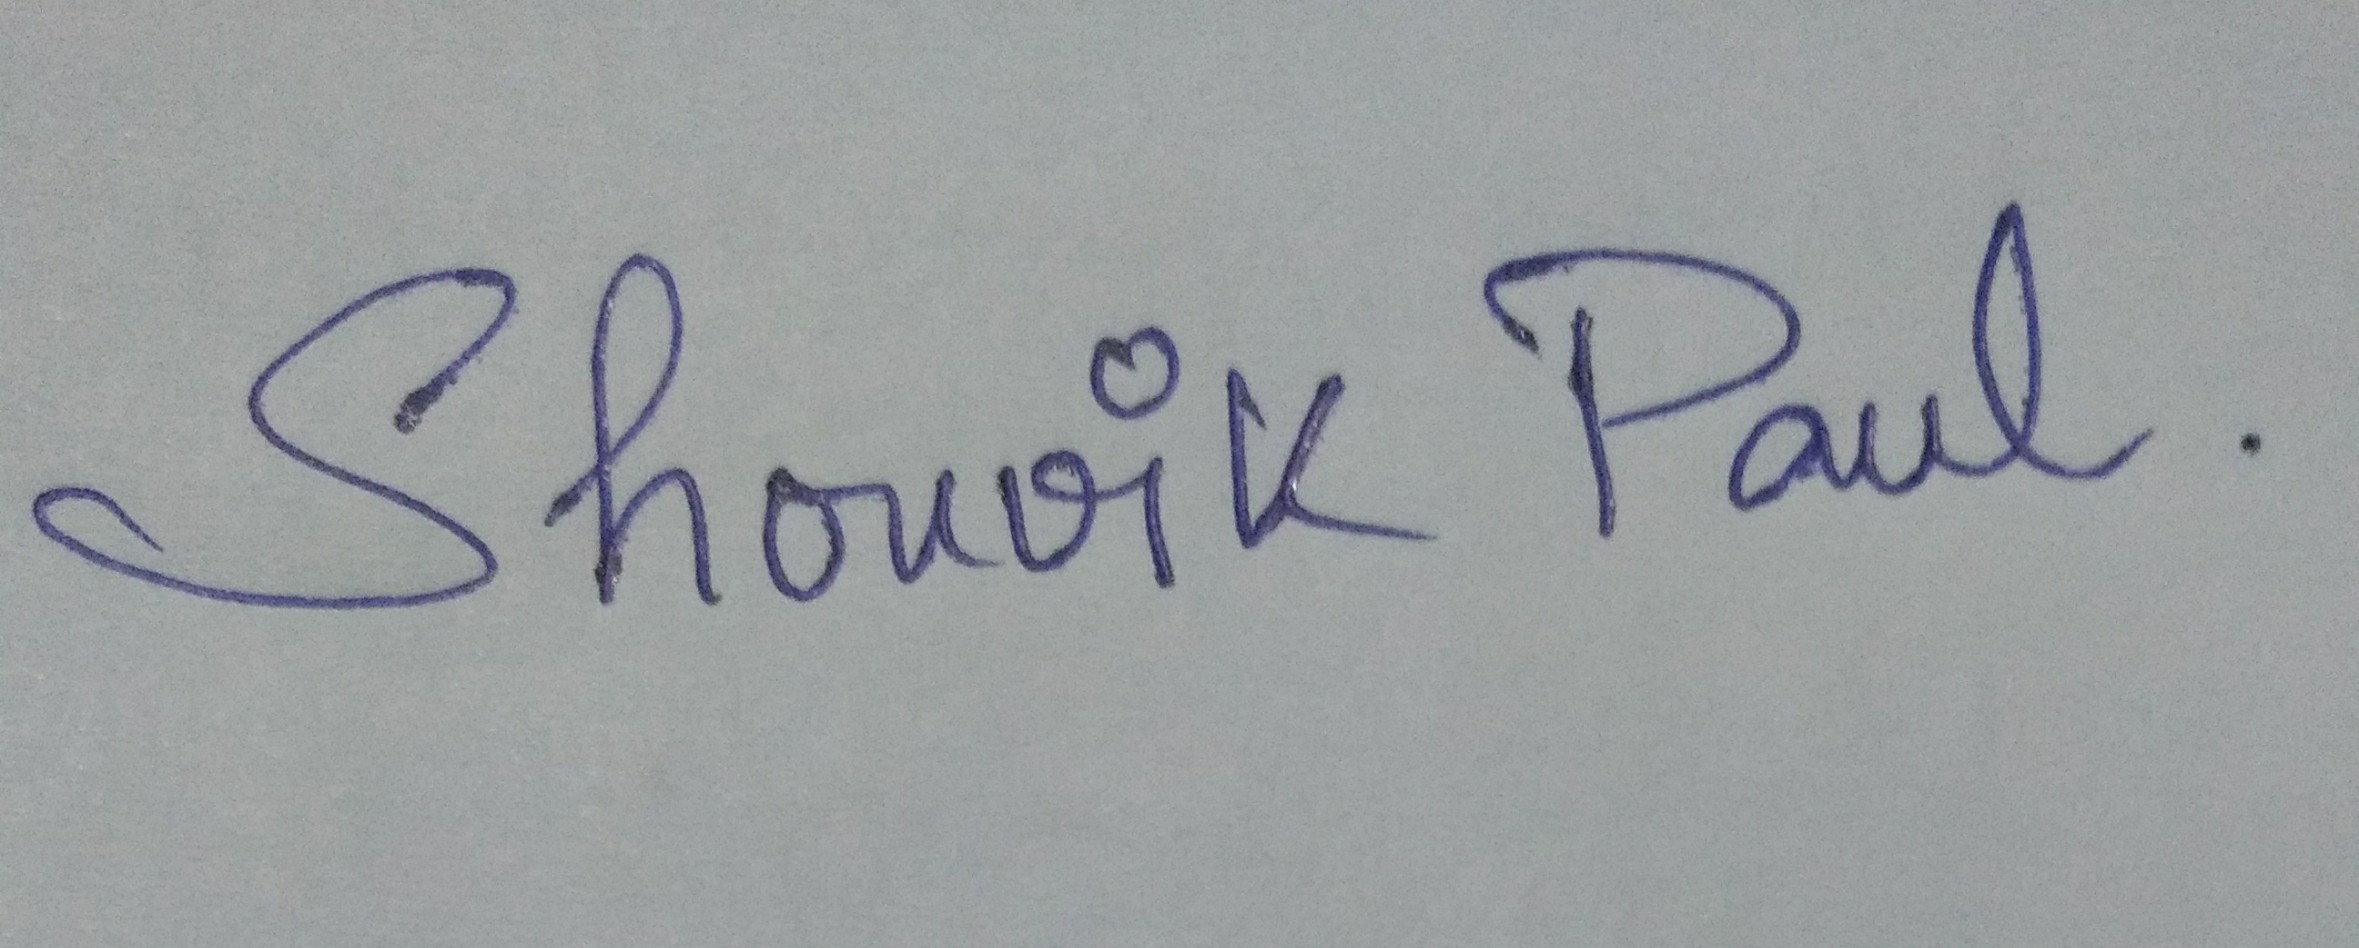 Shouvik Paul.